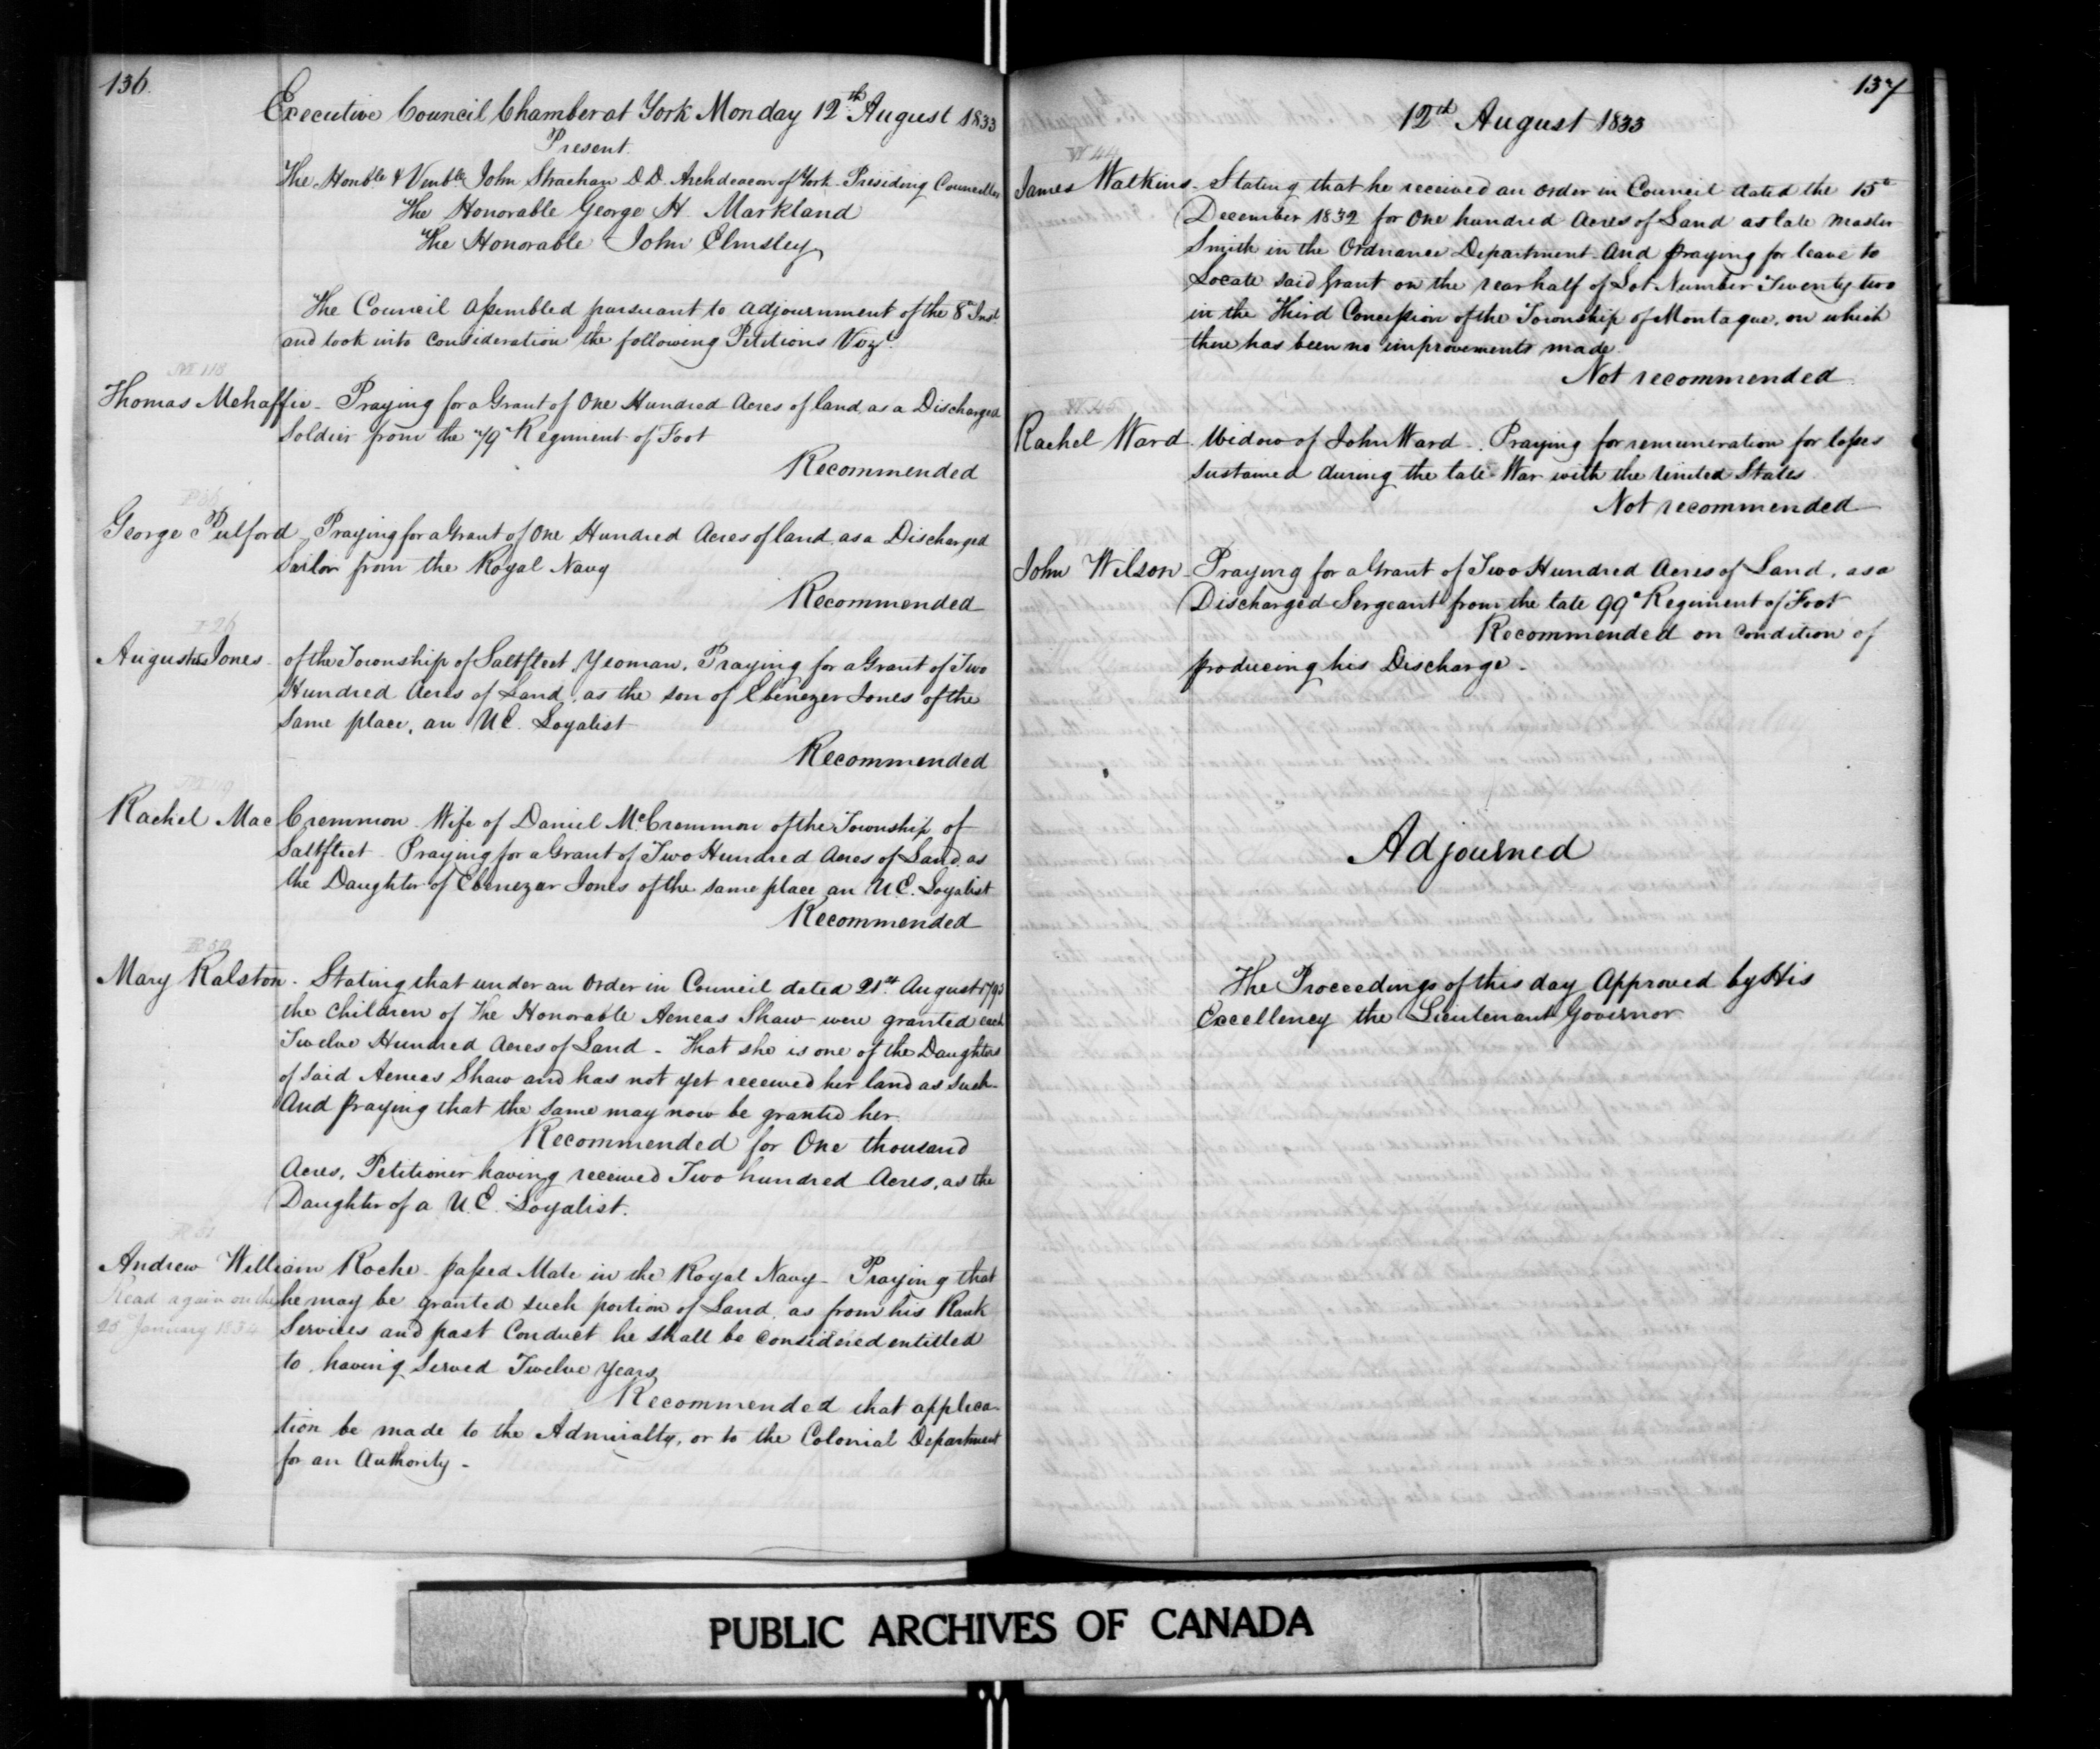 136.
Executive Council Chamber at York Monday 12th August 1833
Present.
The Honble & Venble John Strachan D.D. Archdeacon of York - Presiding Councillor
The Honorable George H. Markland
The Honorable John Elmsley
The Council assembled pursuant to adjournment of the 8th Inst.
and took into consideration the following Petitions Vizt.
M 118
Thomas Mehaffie - Praying for a Grant of One Hundred Acres of land, as a Discharged
Soldier from the 79th Regiment of Foot
Recommended
George Pulford - Praying for a Grant of One Hundred Acres of land, as a Discharged
Sailor from the Royal Navy
Recommended
I 26
Augustus Jones - of the Township of Saltfleet, Yeoman, Praying for a Grant of Two
Hundred Acres of Land, as the son of Ebenezer Jones of the
same place, an U.E. Loyalist
Recommended
Rachel Mac Cremmon - Wife of Daniel McCremmon of the Township of
Saltfleet - Praying for a Grant of Two Hundred Acres of Land, as
the Daughter of Ebenezar Jones of the same place an U.E. Loyalist
Recommended
Mary Ralston - Stating that under an Order in Council dated 21st August 1793
the Children of The Honorable Aeneas Shaw were granted each
Twelve Hundred Acres of Land - That she is one of the Daughters
of said Aeneas Shaw and has not yet received her land as such -
And Praying that the same may now be granted her.
Recommended for One thousand
Acres, Petitioner having received Two hundred Acres, as the
Daughter of a U.E. Loyalist.
R 51
Andrew William Roche - passed Mate in the Royal Navy - Praying that
Read again on the
he may be granted such portion of Land, as from his Rank
25 January 1834
Services and past Conduct he shall be considered entitled
to, having served Twelve Years
Recommended that applica-
tion be made to the Admiralty, or to the Colonial Department
for an Authority -
137
12th August 1833
W 44
James Watkins - Stating that he received an Order in Council dated the 15th
December 1832 for One hundred Acres of Land as late Master
Smith in the Ordnance Department - And Praying for leave to
Locate said Grant on the rear half of Lot Number Twenty two
in the Third Concession of the Township of Montague, on which
there has been no improvements made.
Not recommended
W 45
Rachel Ward - Widow of John Ward - Praying for remuneration for losses
sustained during the late War with the United States
Not recommended
John Wilson - Praying for a Grant of Two Hundred Acres of Land, as a
Discharged Sergeant from the late 99th Regiment of Foot
Recommended on condition of
producing his Discharge -
Adjourned
The Proceedings of this day Approved by His
Excellency the Lieutenant Governor
PUBLIC ARCHIVES OF CANADA